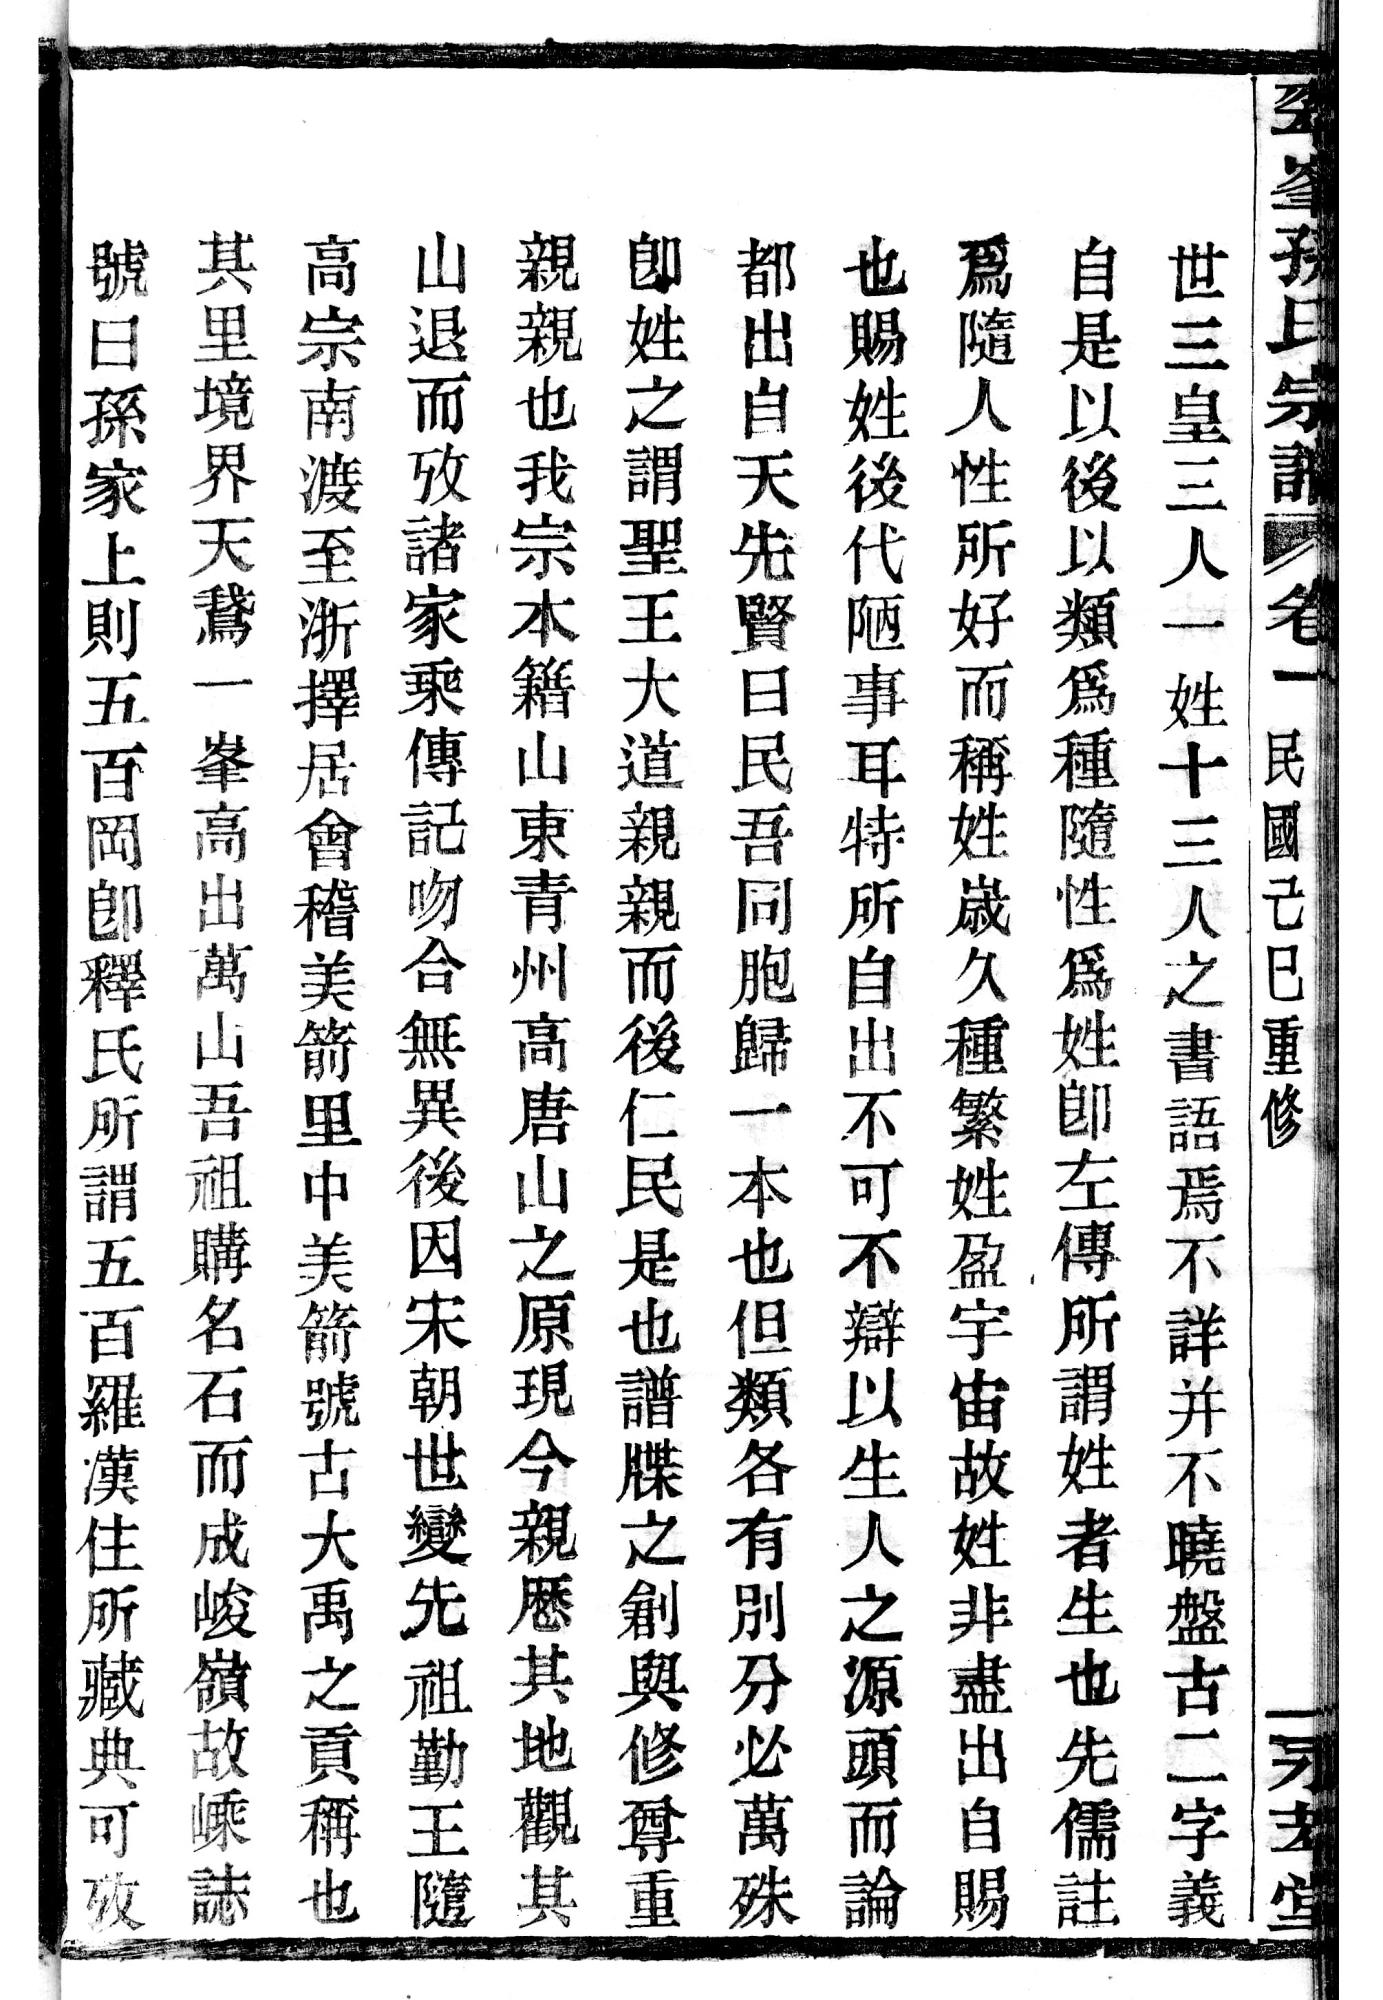 峯孫氏宗譜 卷一 民國己巳重修 堂
世三皇三人一姓十三人之書語焉不詳并不曉盤古二字義
自是以後以類爲種隨性爲姓卽左傳所謂姓者生也先儒註
爲隨人性所好而稱姓歲久種繁姓盈宇宙故姓非盡出自賜
也賜姓後代陋事耳特所自出不可不辯以生人之源頭而論
都出自天先賢曰民吾同胞歸一本也但類各有別分必萬殊
卽姓之謂聖王大道親親而後仁民是也譜牒之創與修尊重
親親也我宗本籍山東青州高唐山之原現今親歷其地觀其
山退而攷諸家乘傳記吻合無異後因宋朝世變先祖勤王隨
高宗南渡至浙擇居會稽美箭里中美箭號古大禹之貢稱也
其里境界天鵞一峯高出萬山吾祖購名石而成峻嶺故嵊誌
號曰孫家上則五百岡卽釋氏所謂五百羅漢住所藏典可攷